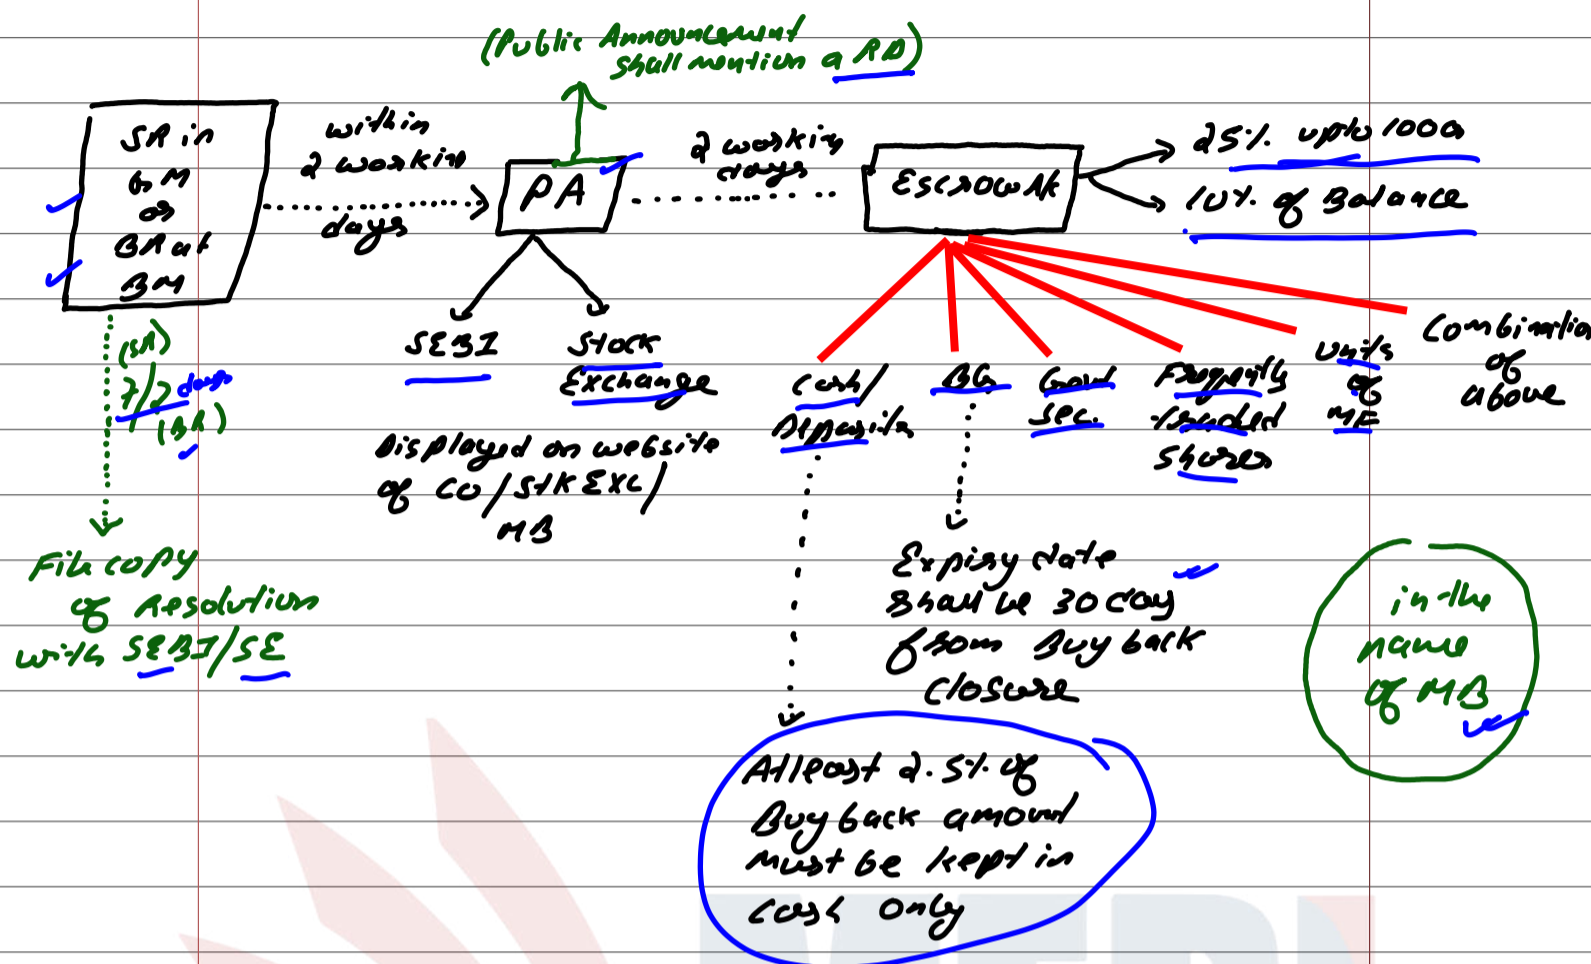 (Public Announcement
shall mention a RD)
SR in
GM
or
BR at
BM
within
2 working
days
PA
2 working
days
Escrow A/c
25% upto 100cr
10% of Balance
(SR)
7/2 days
(BR)
File copy
of Resolution
with SEBI/SE
SEBI
Stock
Exchange
Displayed on website
of CO/Stk Exc/
MB
Cash/
Deposits
BG
Govt
Sec.
Frequently
traded
Shares
Units
of
MF
Combination
of
above
Expiry date
shall be 30 day
from Buy back
closure
in the
name
of MB
Atleast 2.5% of
Buy back amount
must be kept in
cash only